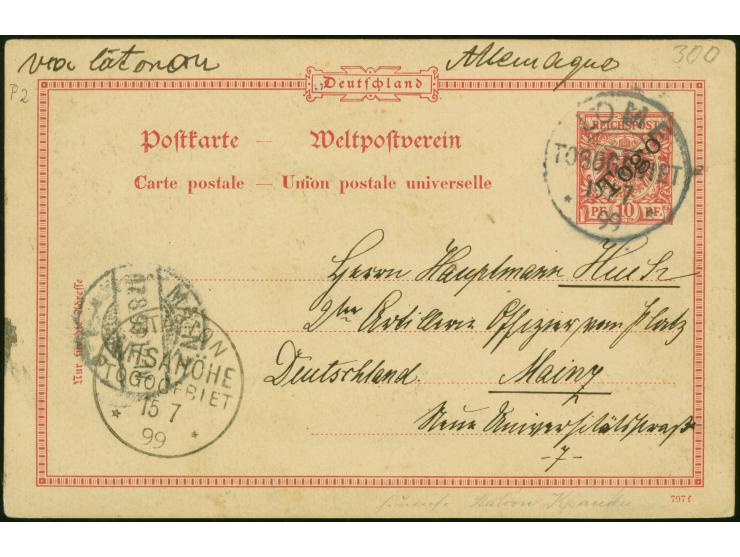 via Allemagne 300
P2
Deutschland
Postkarte — Weltpostverein
Carte postale — Union postale universelle
REICHSPOST
Togo
PF. 10 PF.
LOME
TOGOGEBIET
15 7
99
Nur für die Adresse
Herrn Hauptmann
2ter Artillerie Offizier vom Platz
Deutschland. Mainz
Neue Universitätsstraße
-7-
MAINZ
17.8.
STATION
MISAHÖHE
TOGOGEBIET
15 7
99
Station Kpandu
797f